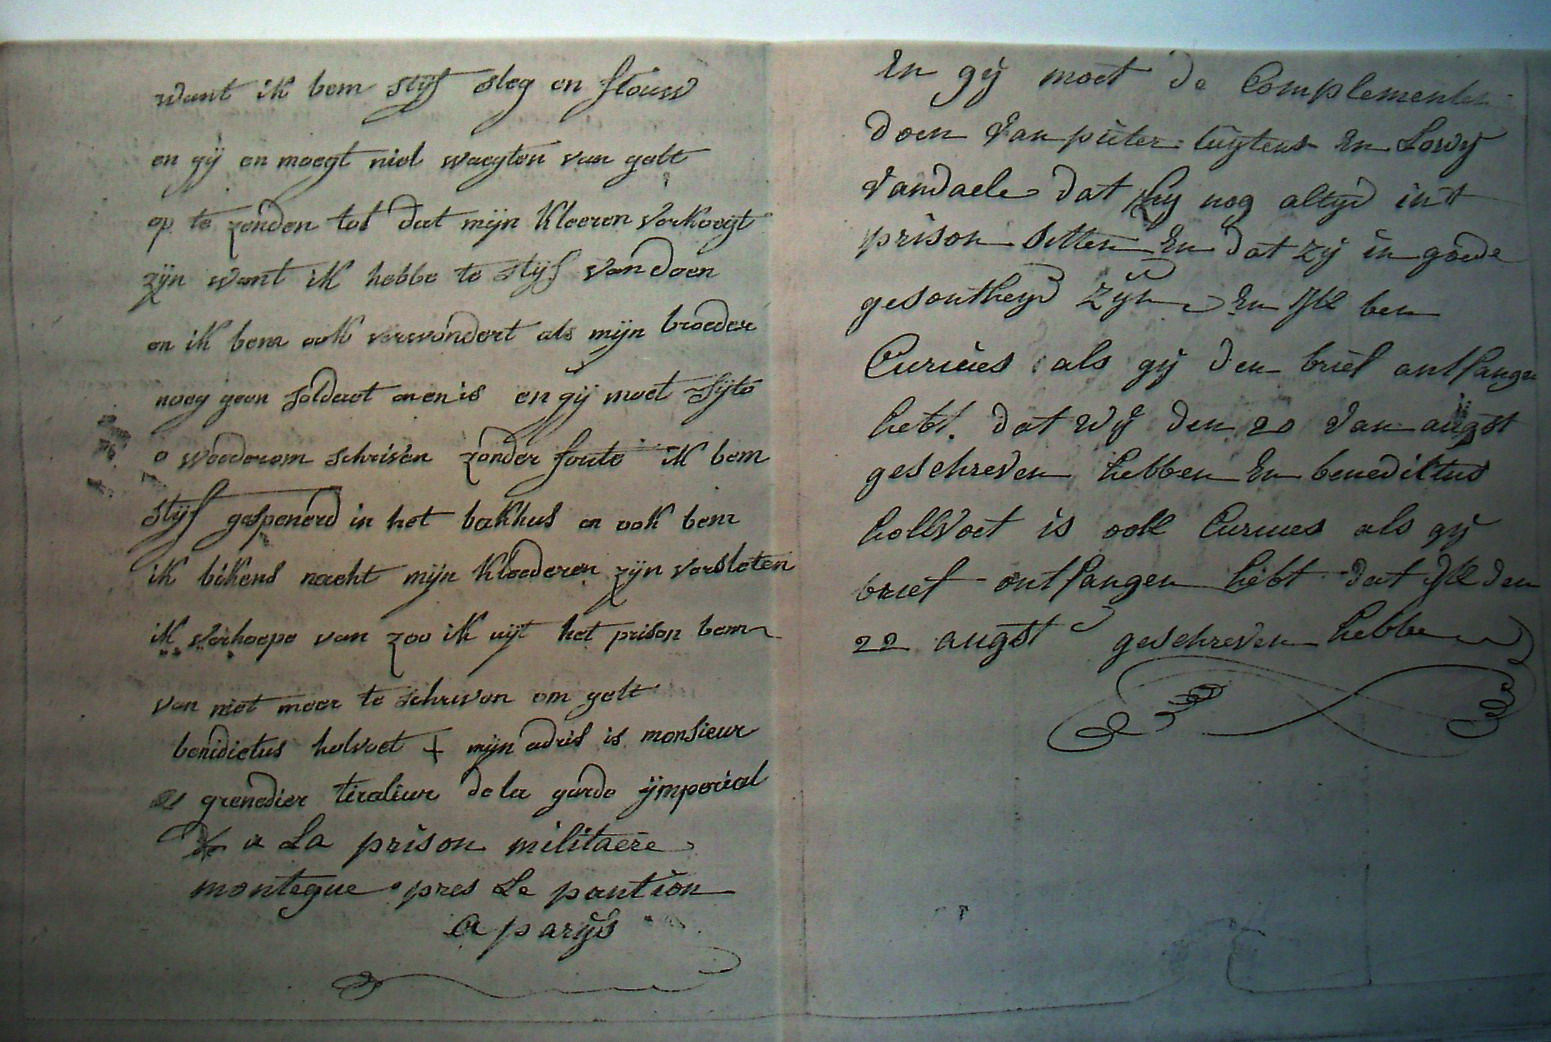 want ik bem stijf sleg en flouw
en gij en moegt niet waegten van gelt
op te zenden tot dat mijn kleeren verkoegt
zijn want ik hebbe te stijf van doen
en ik bem ook verwondert als mijn broeder
noeg geen soldaet en en is en gij moet sijto
o weederom schriven zonder foute ik bem
stijf gespenerd in het bakhus en ook bem
ik bikens naeht mijn kleederen zijn versleten
ik verhoope van zoo ik uijt het prison bem
van niet meer te schriven om gelt
benidictus holvoet + mijn adris is monsieur
grenedier tiralieur de la garde ijmperial
a La prison militaere
monteque pres Le pantion
a parijs
En gij moet de Complementen
doen Van pieter tuijtens En Lowij
Vandaele dat zij nog altijd in't
prison Sitten En dat zij in goede
gesontheyd zijn En Ik ben
Curieus als gij den brief ontfangen
hebt. dat wij den 20 Van augst
geschreven hebben En benediktus
hollVoet is ook Curieus als gij
brief ontfangen hebt dat Ik den
22 augst geschreven hebbe